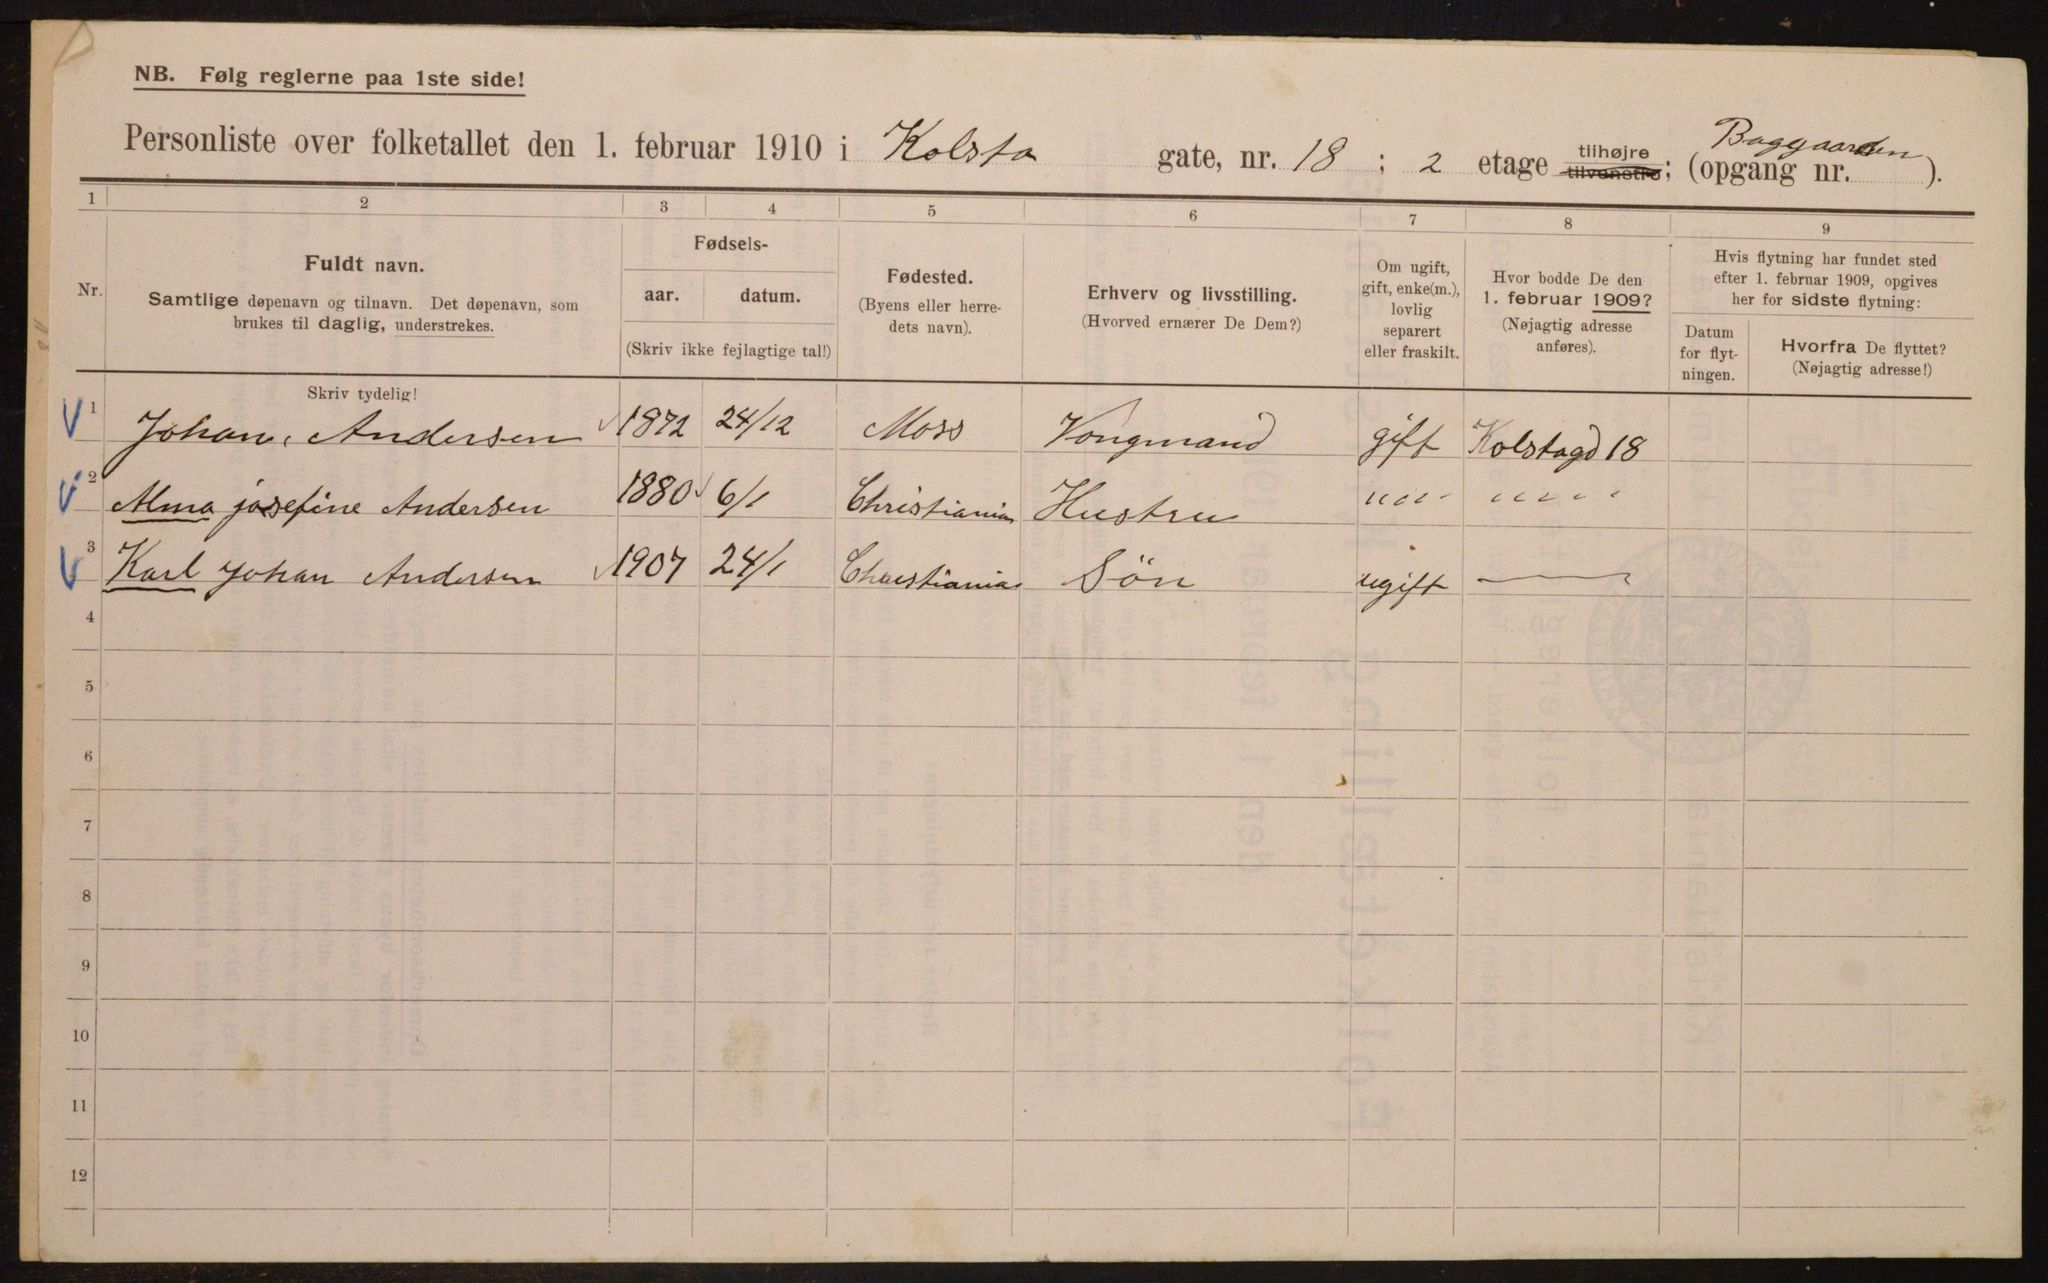 NB. Følg reglerne paa 1ste side!
Baggaarden
Personliste over folketallet den 1. februar 1910 i Kolsta gate, nr. 18 ; 2 etage tilhøjre tilvenstre; (opgang nr. ).
1 2 3 4 5 6 7 8 9
Nr.
Fuldt navn.
Samtlige døpenavn og tilnavn. Det døpenavn, som
brukes til daglig, understrekes.
Skriv tydelig!
Fødsels-
aar. datum.
(Skriv ikke fejlagtige tal!)
Fødested.
(Byens eller herre-
dets navn).
Erhverv og livsstilling.
(Hvorved ernærer De Dem?)
Om ugift,
gift, enke(m.),
lovlig
separert
eller fraskilt.
Hvor bodde De den
1. februar 1909?
(Nøjagtig adresse
anføres).
Hvis flytning har fundet sted
efter 1. februar 1909, opgives
her for sidste flytning:
Datum
for flyt-
ningen.
Hvorfra De flyttet?
(Nøjagtig adresse!)
1 Johan Andersen 1872 24/12 Moss Vongmand gift Kolstagd 18
2 Alma josefine Andersen 1880 6/1 Christiania Hustru " " "
3 Karl Johan Andersen 1907 24/1 Christiania Sön ugift —
4
5
6
7
8
9
10
11
12